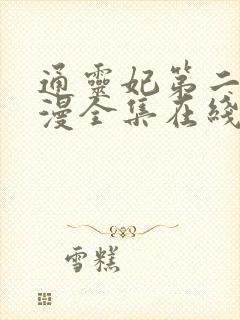 通靈妃第二
漫全集在綫
雪糕